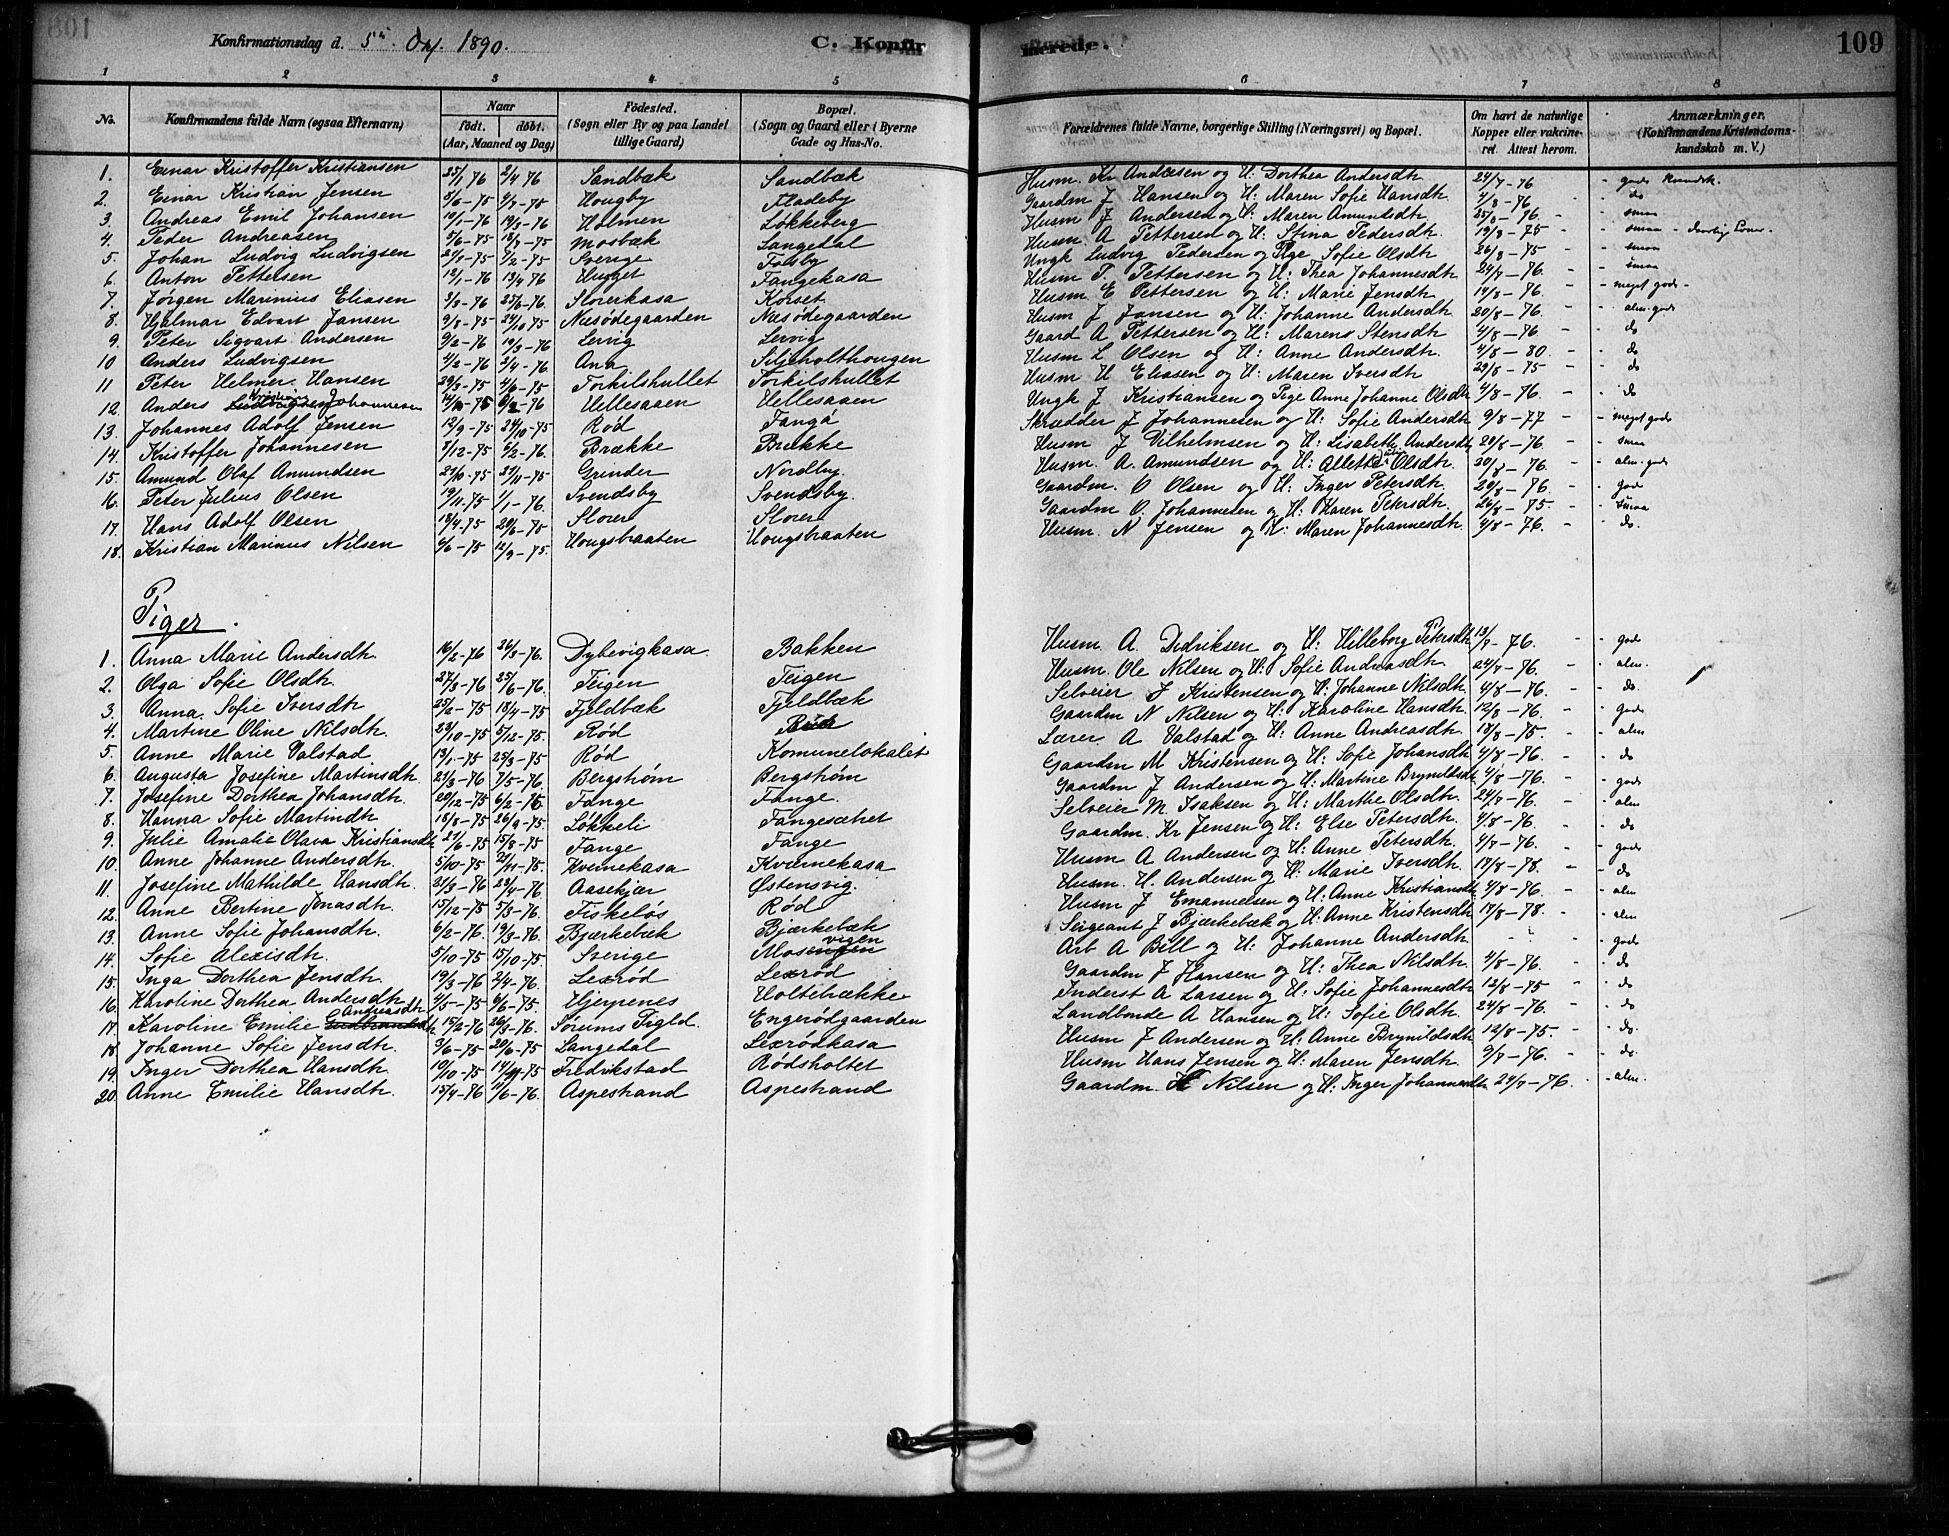 Konfirmationsdag d. 5te Okt. 1890. C. Konfirmerede. 109
1 2 3 4 5 6 7 8
No. Konfirmandens fulde Navn (ogsaa Efternavn) Naar født. døbt. (Aar, Maaned og Dag) Födested. (Sogn eller By og paa Landet tillige Gaard) Bopæl. (Sogn og Gaard eller i Byerne Gade og Hus-No. Forældrenes fulde Navne, borgerlige Stilling (Næringsvei) og Bopæl. Om havt de naturlige Kopper eller vakcineret. Attest herom. Anmærkninger. (Konfirmandens Kristendomskundskab m. V.)
1. Einar Kristoffer Kristiansen 25/1 76 2/4 76 Sandbæk Sandbæk Husm. Kr Andresen og H: Dorthea Andersdtr 24/7-76 - gods Kundsk.
2. Einar Kristian Jensen Hougby Fladeby Gaardm J Hansen og H: Maren Sofie Hansdtr 4/8-76 - do
3. Andreas Emil Johansen Holmen Løkkeberg Husm J Andersen og H: Maren Amundsdtr 25/8-76 - smaa
4. Peder Andreasen Mosbæk Langedal Husm. A Pettersen og H: Stina Pedersdtr 19/8-75 - smaa
5. Johan Ludvig Ludvigsen Sverige Folsby Ungk Ludvig Pedersen og Pige Sofie Olsdtr 26/8-75 - smaa
6. Anton Pettersen 12/1-76 13/4 76 Hugget Fangekasa Husm P. Pettersen og H: Thea Johannesdtr 24/7-76 - smaa
7. Jørgen Marinius Eliasen Slorerkasa Korset Husm E Pettersen og H: Marie Jensdtr 14/8-76 - meget gods
8. Hjalmar Edvart Jansen 9/8-75 24/10 75 Næsødegaarden Næsødegaarden Husm J Jansen og H: Johanne Andersdtr 20/8-76 - alm. gods
9. Peter Sigvart Andersen 9/2-76 19/3-76 Lervig Lervig Gaard A Pettersen og H: Maren Stensdtr 4/8-76 - do
10 Anders Ludvigsen 4/2-76 2/4-76 Ana Siljeholthougen Husm L Olsen og H: Anne Andersdtr. 4/8-80 - do
11 Peter Helmer Hansen Torkilshullet Torkilshullet Husm H Eliasen og H: Maren Iversdtr 29/8-75 - do
12. Anders Ludvigsen Kristian Johannesen Hellesaaen Hellesaaen Ungk J Kristiansen og Pige Anne Johanne Olsdtr 4/8-76 - do
13. Johannes Adolf Jensen 12/9-75 24/10-75 Rød Fangå Skrædder J Johannesen og H: Sofie Andersdtr 9/8-77 - meget gods
14 Kristoffer Johannesen 3/12-75 6/2-76 Brække Brække Husm J Vilhelmsen og H: Lisabeth Andersdtr 20/8-76 - smaa
15. Amund Olaf Amundsen Grinder Nordby. Husm. A. Amundsen og H: Allette Olsdtr. 20/8-76 - alm. gods
16. Peter Julius Olsen 19/11-75 1/1-76. Svendsby Svendsby. Gaardm. O Olsen og H: Inger Petersdtr. 20/8-76 - gods
17. Hans Adolf Olsen 18/4-75 20/6-75 Slorer Slorer Gaardm O. Johannesen og H: Karen Petersdtr. 24/8-75 - smaa
18. Kristian Marinus Nilsen 6/6-75 12/9-75. Hougsbraaten Hougsbraaten Husm. N Jensen og H: Maren Johannesdtr 4/8-76 - do.
Piger.
1. Anna Marie Andersdtr 16/2-76 26/3-76. Dybevigkasa Bakken Husm A. Didriksen og H: Hilleborg Petersdtr 13/7-76. - gods
2. Olga Sofie Olsdtr. 27/3-76 25/6-76. Teigen Teigen Husm. Ole Nilsen og H: Sofie Andreasdtr 24/7-76. - alm.
3. Anna. Sofie Iversdtr 25/2-75 18/4-75 Fjeldbæk Fjeldbæk Selveier J Kristensen og H: Johanne Nilsdtr. 4/8-76. - do.
4. Martine Oline Nilsdtr. 23/10-75 5/12-75. Rød Rød Gaardm N Nilsen og H: Karoline Hansdtr. 12/8-76. - gods
5. Anne Marie Valstad 13/1-75 25/3-75 Rød Komunelokalet Lærer. A Valstad og H: Anne Andreasdtr. 18/8-75 - alm
6. Augusta Josefine Martinsdtr. 21/3-76 7/5-76. Bergstrøm Bergstrøm Gaardm M Kristensen og H: Sofie Johansdtr. 4/8-76. - do
7. Josefine Dorthea Johansdtr. 20/12-75 6/2-76 Fange Fange. Gaardm J Andersen og H: Martine Brynildsdtr 4/8-76. - gods
8 Hanna Sofie Martindtr 18/8-75 26/9-75. Løkkeli Fangesætret Selveier M. Isaksen og H: Marthe Olsdtr. 24/7-76. - alm
9. Julie Amalie Olava Kristiansdtr 27/6-75 15/8-75. Fange Fange Gaardm. Kr Jensen og H: Else Petersdtr. 4/8-76. - do
10. Anne Johanne Andersdtr. 5/10-75 21/11-75. Kvernekasa Kværnekasa Husm A Andersen og H: Anne Petersdtr. 4/7-76. - gods
11. Josefine Mathilde Hansdtr. 21/3-76 23/4-76 Aasekjær Østensvig. Husm. H. Andersen og H: Marie Iversdtr. 17/8-78. - do
12. Anne Bertine Jonasdtr. 15/12-75 5/3-76. Fiskeløs Rød Husm J Emanuelsen og H: Anne Kristiansdtr. 4/8-76. - alm
13. Anne Sofie Johansdtr. 6/2-76. 19/3-76. Bjærkebæk Bjærkebæk Sergeant J Bjærkebæk og H: Anne Kristensdtr. 17/8-78. - alm
14. Sofie Alexisdtr. 5/10-75 15/10-75. Sverige Mosevigen Arb A Bell og H: Johanne Andersdtr - - gods
15. Inga Dorthea Jensdtr. 19/3-76 2/4-76. Lexrød Lexrød Gaardm J Hansen og H: Thea Nilsdtr. 4/8-76. - do
16. Karoline Dorthea Andersdtr 4/5-75 6/6-75. Hjepenes Holtebrække Inderst A Larsen og H: Sofie Johannesdtr 12/8-75 - do
17. Karoline Emilie Gudbrandsdtr Andreasdtr 15/2-76 26/3-76. Sørums Tigld. Engerødgaarden Landbonde A Hansen og H: Sofie Olsdtr. 24/8-76. - do
18. Johanne Sofie Jensdtr. 9/6-75 20/6-75 Langedal Lexrødkasa Husm J Andersen og H: Anne Brynildsdtr 12/8-75. - do.
19. Inger Dorthea Hansdtr. 19/10-75 14/11-75 Fredrikstad Rødsholtet Husm Hans Jensen og H: Maren Jensdtr. 9/7-76. - do.
20. Anne Emilie Hansdtr. 15/4-76 11/6-76. Aspestrand Aspestrand Gaardm. H Nilsen og H: Inger Johannesdtr 24/7-76. - alm.